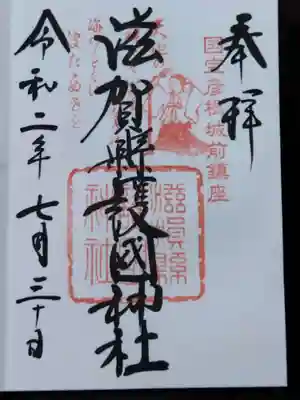 奉拝
国宝彦根城前鎮座
滋賀縣護國神社
滋賀縣
神社
令和二年七月三十日